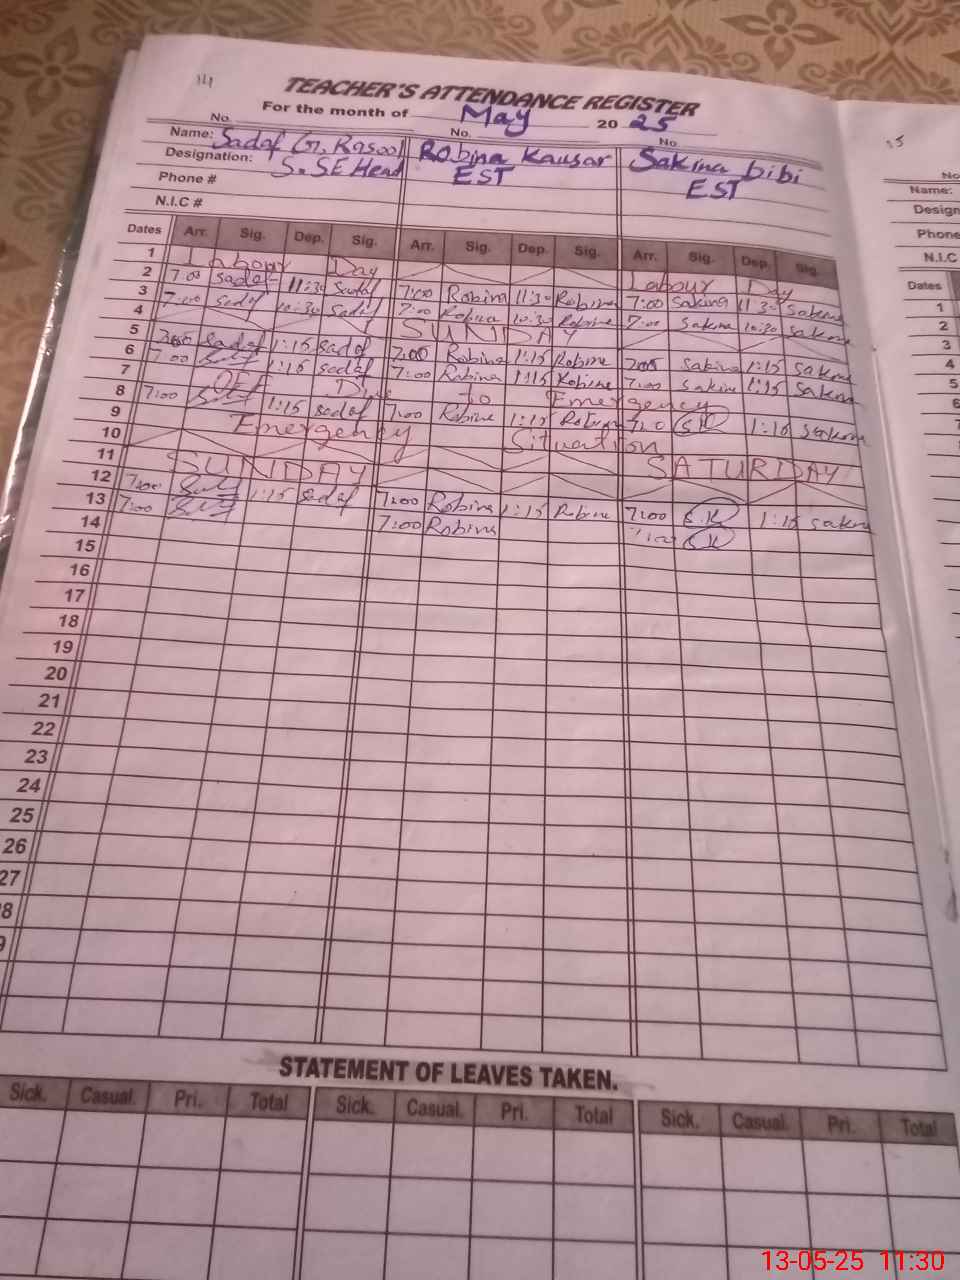 TEACHER'S ATTENDANCE REGISTER
For the month of May 2025
No. No. No.
Name: Sadaf G. Rasool Robina Kausar Sakina bibi
Designation: S.SE Head EST EST
Phone #
N.I.C #
Dates Arr. Sig. Dep. Sig. Arr. Sig. Dep. Sig. Arr. Sig. Dep. Sig.
1 Labour Day Labour Day
2 7:00 sadaf 11:30 sadaf 7:00 Robina 11:30 Robina 7:00 Sakina 11:30 Sakina
3 7:00 sadaf 10:30 sadaf 7:00 Robina 10:30 Robina 7:00 Sakina 10:30 Sakina
4 SUNDAY
5 7:00 sadaf 1:15 sadaf 7:00 Robina 1:15 Robina 7:00 Sakina 1:15 Sakina
6 7:00 1:15 sadaf 7:00 Robina 1:15 Robina 7:00 Sakina 1:15 Sakina
7 OFF Due to Emergency
8 7:00 1:15 sadaf 7:00 Robina 1:15 Robina 7:00 S.K 1:15 Sakina
9 Emergency Situation
10
11 SUNDAY SATURDAY
12 7:00 1:15 sadaf 7:00 Robina 1:15 Robina 7:00 S.K 1:15 Sakina
13 7:00 7:00 Robina 7:00 S.K
14
15
16
17
18
19
20
21
22
23
24
25
26
27
8
9
STATEMENT OF LEAVES TAKEN.
Sick. Casual. Pri. Total Sick. Casual. Pri. Total Sick. Casual. Pri. Total
No
Name:
Design
Phone
N.I.C
Dates
1
2
3
4
5
6
7
13-05-25 11:30